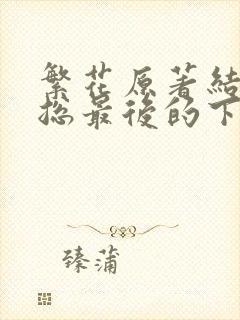 繁花原著結
捴最後的下
臻蒲